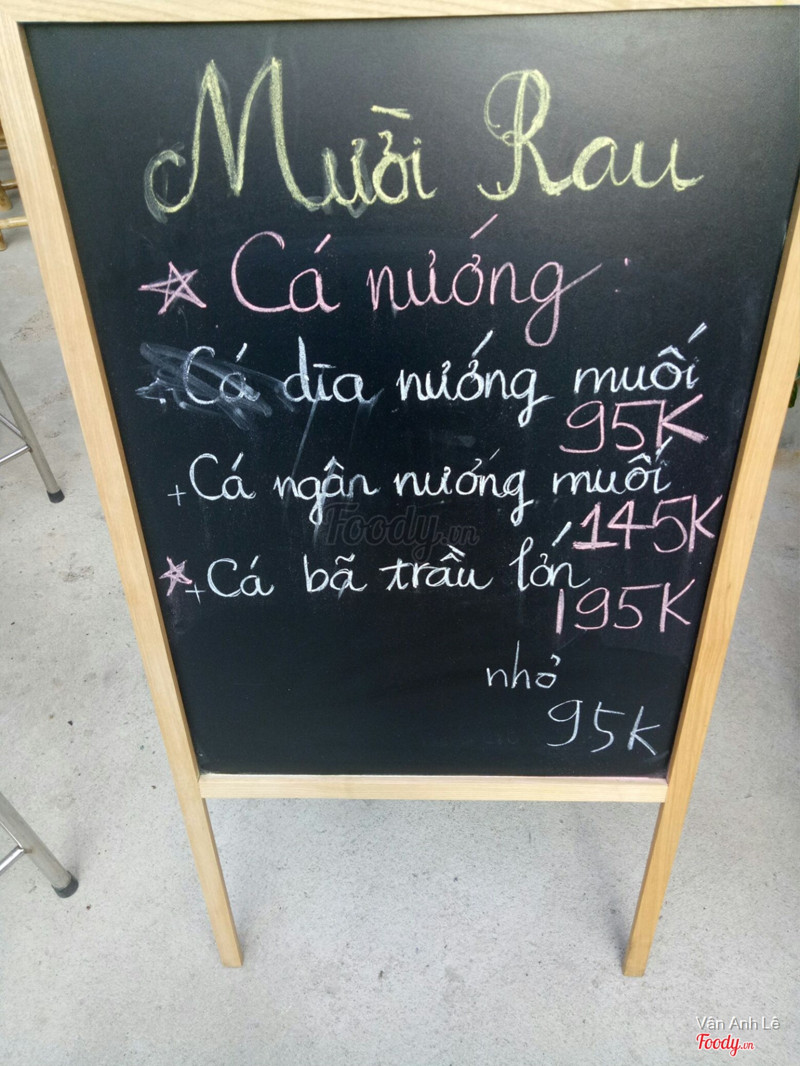 Mười Rau
☆ Cá nướng :
+ Cá dĩa nướng muối
95K
+ Cá ngân nướng muối
145K
☆ + Cá bã trầu lớn
195K
nhỏ
95K
Foody.vn
Vân Anh Lê
Foody.vn